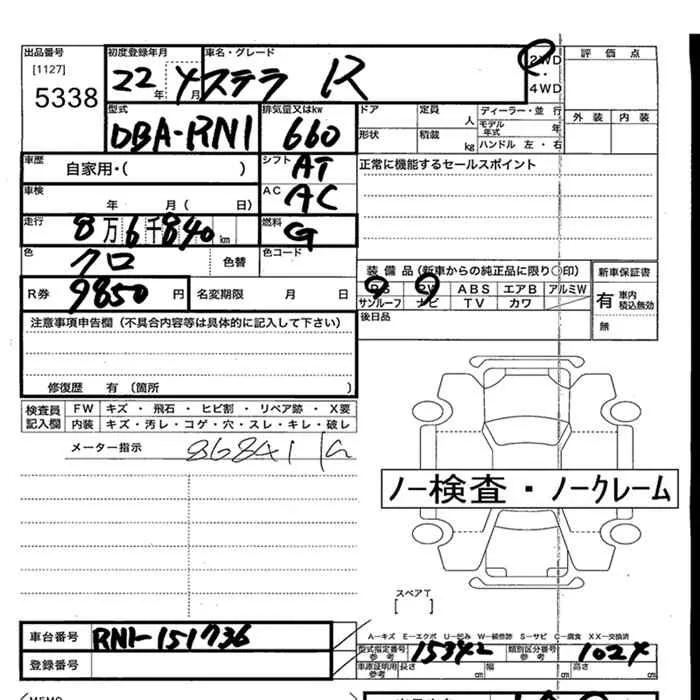 出品番号 初度登録年月 車名・グレード 2WD ・ 4WD 評価点
[1127]
5338 22年 4月 ステラ R
外装 内装
型式 DBA-RN1 排気量又はkw 660
ドア 定員 人 ディーラー・並行
モデル年式 年
形状 積載 kg ハンドル 左・右
車歴 自家用・( ) シフト AT
正常に機能するセールスポイント
車検 年 月( 日) AC AC
走行 8万6千840km 燃料 G
色 クロ 色替 色コード
装備品(新車からの純正品に限り○印) 新車保証書
R券 9850円 名変期限 月 日
PS PW ABS エアB アルミW 有 車内積込無効
サンルーフ ナビ TV カワ
無
後日品
注意事項申告欄(不具合内容等は具体的に記入して下さい)
修復歴 有(箇所 )
検査員記入欄 FW キズ・飛石・ヒビ割・リペア跡・X要
内装 キズ・汚レ・コゲ・穴・スレ・キレ・破レ
メーター指示 86841
ノー検査・ノークレーム
スペアT
[ ]
A―キズ E―エクボ U―凹み W―補修跡 S―サビ C―腐食 XX―交換済
車台番号 RN1-151736
型式指定番号 参考 15342 類別区分番号 参考 1024
登録番号
車庫証明用 参考 長さ cm 幅 cm 高さ cm
MEMO